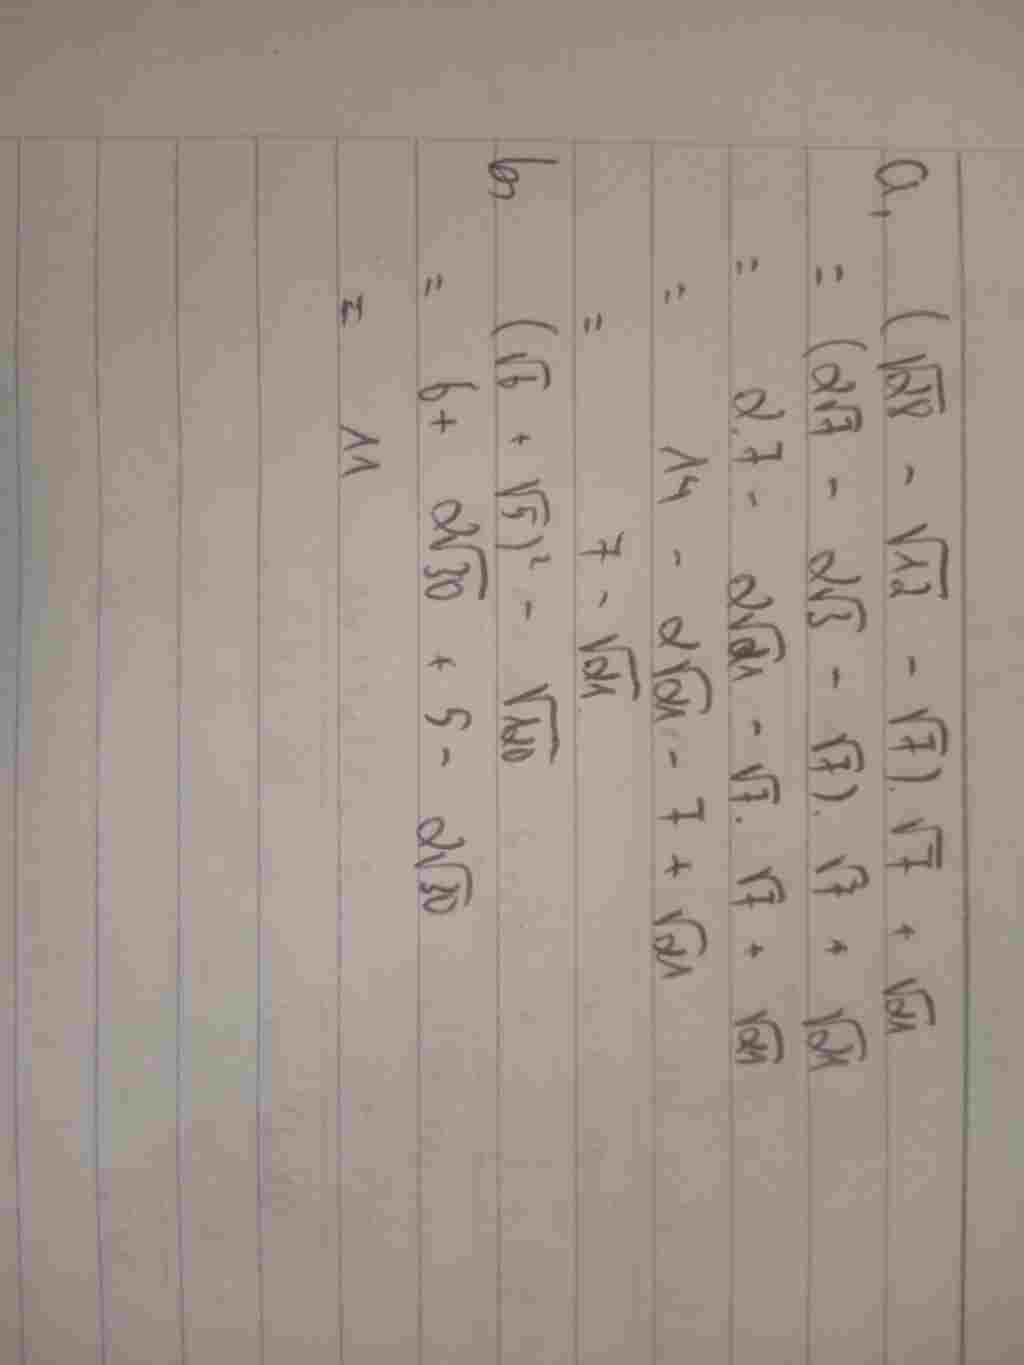 a, (√28 - √12 - √7). √7 + √21
= (2√7 - 2√3 - √7). √7 + √21
= 2.7 - 2√21 - √7. √7 + √21
= 14 - 2√21 - 7 + √21
= 7 - √21
b, (√6 + √5)² - √120
= 6 + 2√30 + 5 - 2√30
= 11